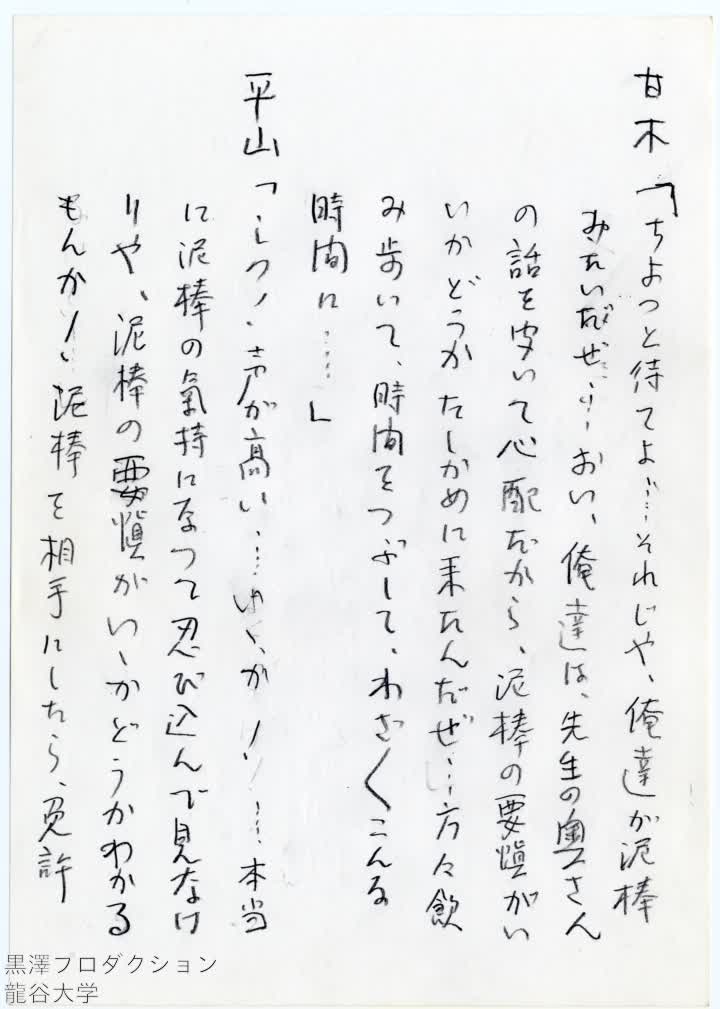 甘木「ちよつと待てよ……それじや、俺達が泥棒
みたいだぜ……おい、俺達は、先生の奥さん
の話を聞いて心配だから、泥棒の要愼がい
いかどうかたしかめに来たんだぜ……方々飲
み歩いて、時間をつぶして、わざ〱こんな
時間に……」
平山「シツ！声が高い……いゝか！……本当
に泥棒の氣持になつて忍び込んで見なけ
りや、泥棒の要愼がいゝかどうかわかる
もんか！泥棒を相手にしたら、免許
黒澤プロダクション
龍谷大学